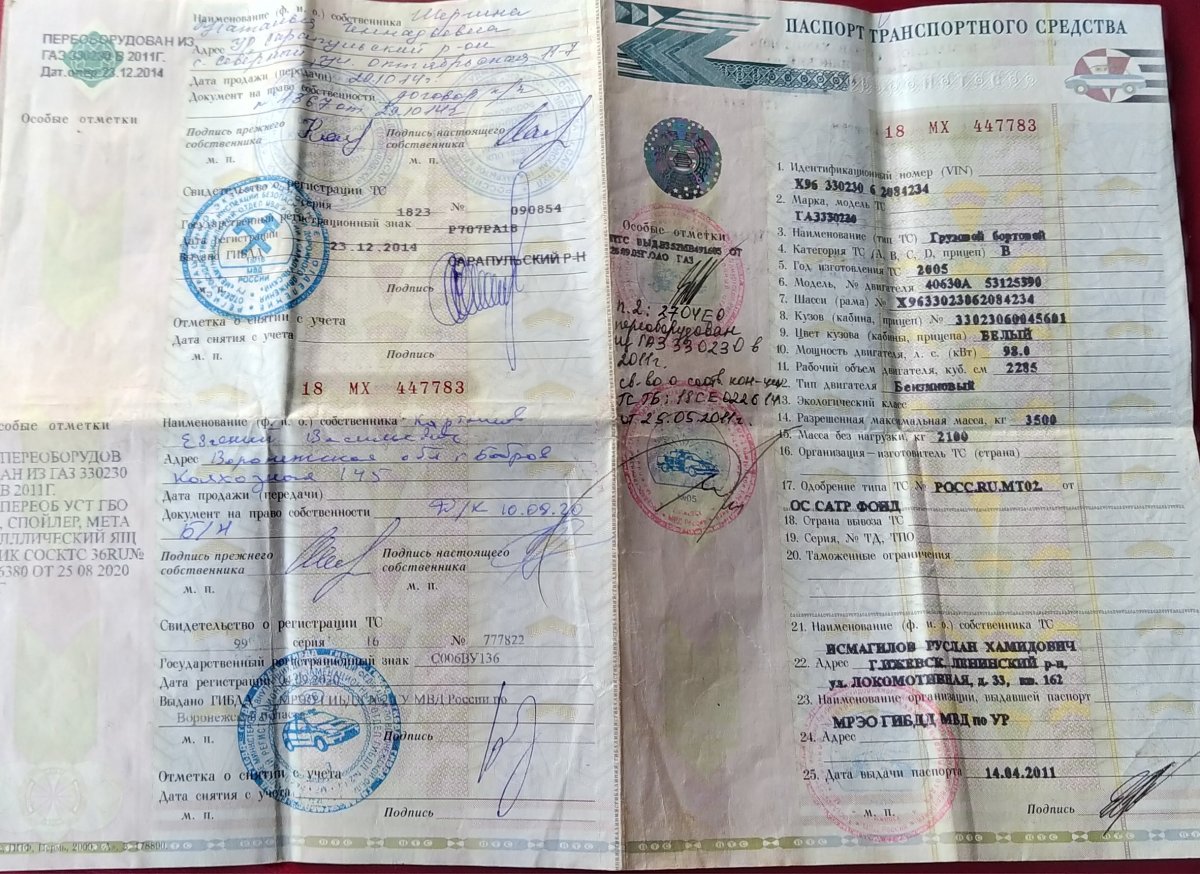 ПЕРЕОБОРУДОВАН ИЗ
ГАЗ 330230 В 2011Г.
Дат.опер.23.12.2014
Особые отметки
Наименование (ф. и. о.) собственника Шергина
Адрес
Дата продажи (передачи) 29.10.14г.
Документ на право собственности договор к/п
Подпись прежнего собственника
Подпись настоящего собственника
м. п.
м. п.
Свидетельство о регистрации ТС
серия 1823 № 090854
Государственный регистрационный знак Р707РА18
Дата регистрации 23.12.2014
Выдано ГИБДД САРАПУЛЬСКИЙ Р-Н
м. п.
Подпись
Отметка о снятии с учета
Дата снятия с учета
м. п.
Подпись
18 МХ 447783
особые отметки
ПЕРЕОБОРУДОВ
АН ИЗ ГАЗ 330230
В 2011Г.
ПЕРЕОБ УСТ ГБО
, СПОЙЛЕР, МЕТА
ЛЛИЧЕСКИЙ ЯЩ
ИК СОСКТС 36RU№
6380 ОТ 25 08 2020
Наименование (ф. и. о.) собственника
Евгений Васильевич
Адрес Воронежская обл г. Бобров
Колхозная 145
Дата продажи (передачи)
Документ на право собственности Д/К 10.09.20
Б/Н
Подпись прежнего собственника
Подпись настоящего собственника
м. п.
м. п.
Свидетельство о регистрации ТС
99 серия 16 № 777822
Государственный регистрационный знак С006ВУ136
Дата регистрации
Выдано ГИБДД МВД России по
Воронежской области
м. п.
Подпись
Отметка о снятии с учета
Дата снятия с учета
м. п.
Подпись
ПАСПОРТ ТРАНСПОРТНОГО СРЕДСТВА
18 МХ 447783
Особые отметки
п. 2: 2704ЕО
переоборудован
из ГАЗ 330230 в
2011г.
св-во о соотв. кон-ции
от 25.05.2011г.
1. Идентификационный номер (VIN)
Х96 330230 6 2084234
2. Марка, модель ТС
ГАЗ330230
3. Наименование (тип ТС) Грузовой бортовой
4. Категория ТС (А, В, С, D, прицеп) В
5. Год изготовления ТС 2005
6. Модель, № двигателя 40630А 53125390
7. Шасси (рама) № Х9633023062084234
8. Кузов (кабина, прицеп) № 33023060045601
9. Цвет кузова (кабины, прицепа) БЕЛЫЙ
10. Мощность двигателя, л. с. (кВт) 98.0
11. Рабочий объем двигателя, куб. см 2285
12. Тип двигателя Бензиновый
13. Экологический класс
14. Разрешенная максимальная масса, кг 3500
15. Масса без нагрузки, кг 2100
16. Организация–изготовитель ТС (страна)
17. Одобрение типа ТС № РОСС.RU.МТ02. от
ОС САТР ФОНД
18. Страна вывоза ТС
19. Серия, № ТД, ТПО
20. Таможенные ограничения
21. Наименование (ф. и. о.) собственника ТС
ИСМАГИЛОВ РУСЛАН ХАМИДОВИЧ
22. Адрес Г.ИЖЕВСК ЛЕНИНСКИЙ р-н,
ул. ЛОКОМОТИВНАЯ, д. 33, кв. 162
23. Наименование организации, выдавшей паспорт
МРЭО ГИБДД МВД по УР
24. Адрес
25. Дата выдачи паспорта 14.04.2011
м. п.
Подпись